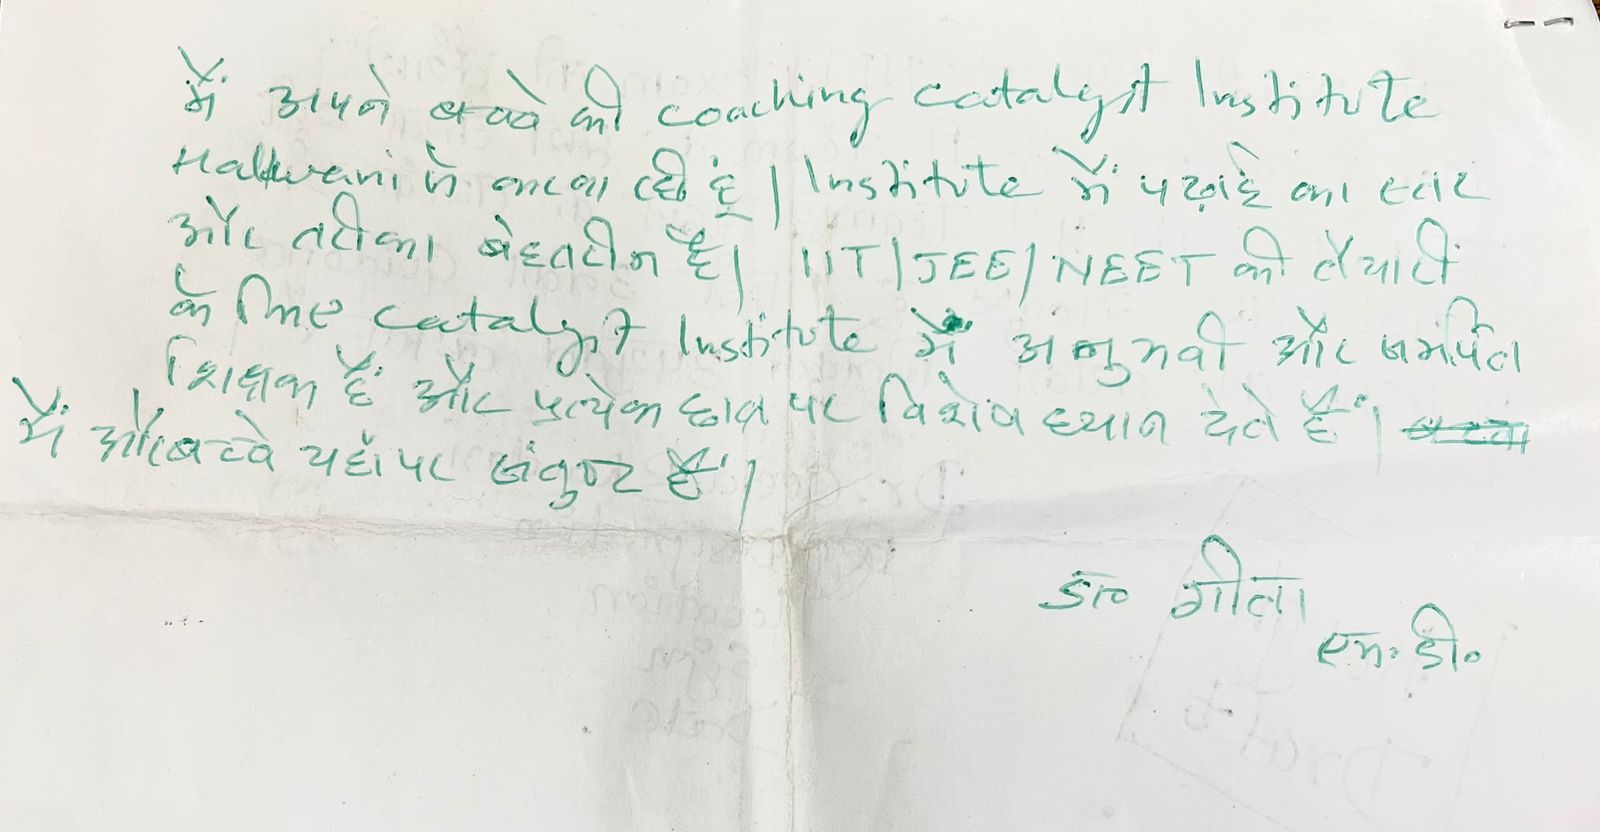 मैं अपने बच्चे की coaching catalyst Institute
Haldwani में करवा रही हूं। Institute में पढ़ाई का स्तर
और तरीका बेहतरीन है। IIT/JEE/NEET की तैयारी
के लिए catalyst Institute में अनुभवी और समर्पित
शिक्षक हैं और प्रत्येक छात्र पर विशेष ध्यान देते हैं।
मैं और बच्चे यहाँ पर संतुष्ट हैं।
डा० गीता
एम. डी०